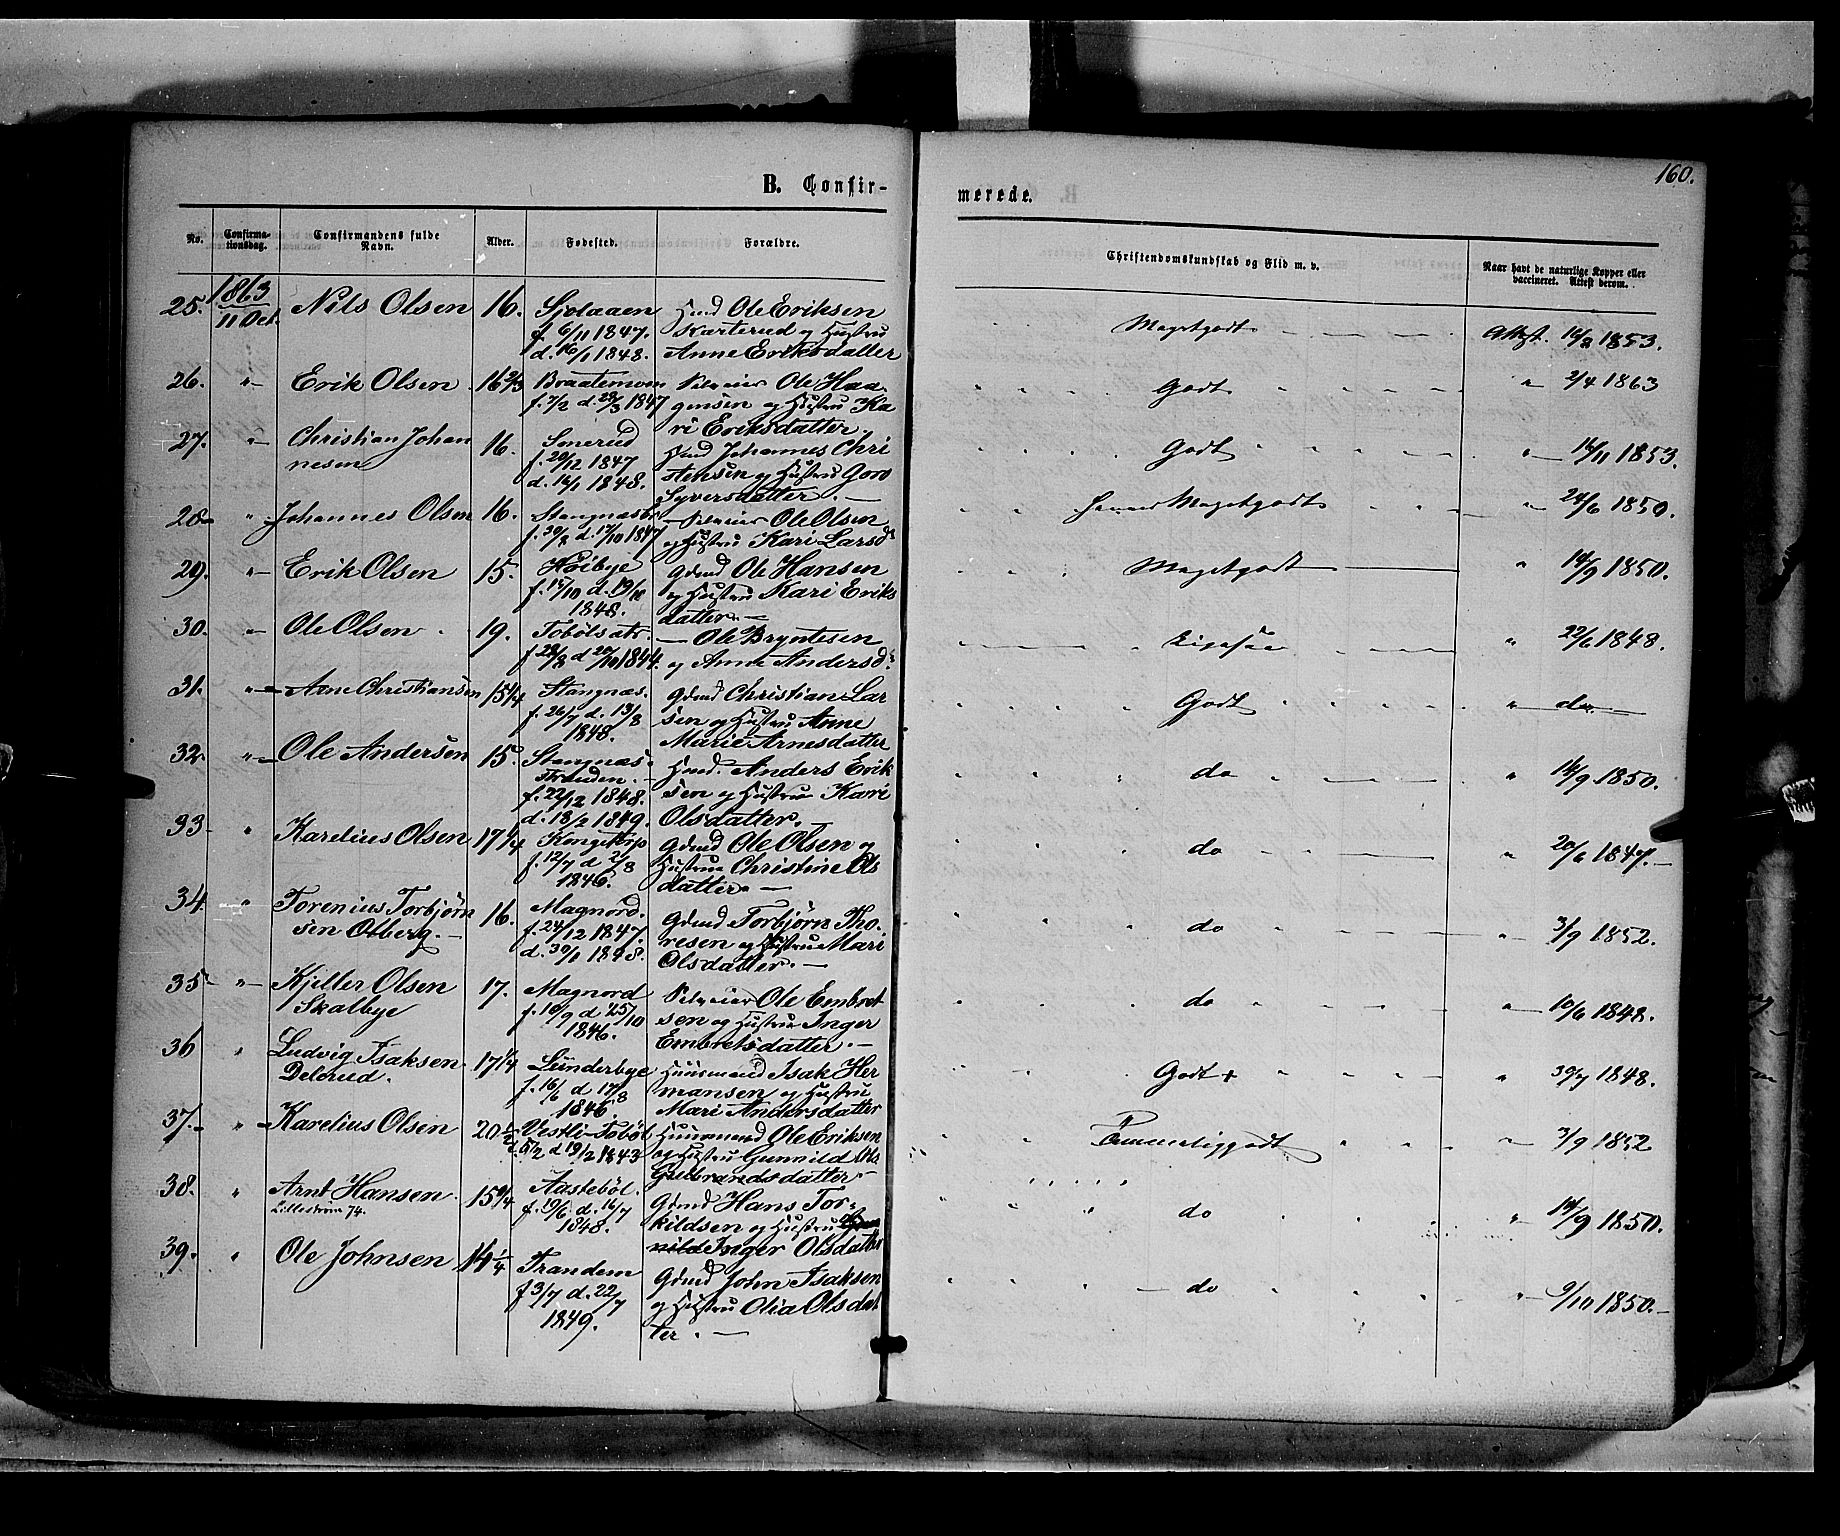 160.
B. Confir-
merede.
No.
Confirma-
tionsdag.
Confirmandens fulde
Navn.
Alder.
Fødested.
Forældre.
Christendomskundskab og Flid m. v.
Naar havt de naturlige Kopper eller
vaccineret. Attest derom.
25. 1863 Nils Olsen 16.
11 Oct.
f. 6/11 1847.
d. 16/1 1848.
Ole Eriksen
Karterud og Hustru
Anne Eriksdatter
Megetgodt
Attest. 1853.
26. " Erik Olsen 16 2/3 Braatemoen
f. 7/2 d. 28/3 1847
Ole Haa
gensen og Hustru Ka
ri Eriksdatter.
Godt
" 2/4 1863
27. " Christian Johan
nesen
16. Smerud
f. 20/12 1847
d. 16/1 1848.
Johannes Chri
stensen og Hustru Goro
Syversdatter. —
Godt
" 16/11 1853.
28. " Johannes Olsen 16.
f. 30/8 d. 17/10 1847
Ole Olsen
og Hustru Kari Larsd.
Megetgodt
" 24/6 1850.
29. " Erik Olsen 15. Høibye
f. 15/10 d. 19/11
1848.
Gdmd Ole Hansen
og Hustru Kari Eriks
datter. —
Megetgodt
" 14/9 1850.
30. " Ole Olsen 19. Tobølsætr.
f. 28/8 d 20/10 1844.
— Ole Bryntesen
og Anne Andersd.
" 22/6 1848.
31. " Arne Christiansen 15 1/4 Stangnæs.
f. 26/7 d. 13/8
1848.
Gdmd Christian Lar
sen og Hustru Anne
Marie Arnesdatter
Godt
" do.
32. " Ole Andersen 15. Stangnæs-
stranden. —
f. 22/12 1848.
d. 18/2 1849.
Hmd. Anders Erik
sen og Hustru Kari
Olsdatter. —
do
" 14/9 1850.
33 " Karelius Olsen 17 1/4 Kongstorp
f. 12/7 d 2/8
1846.
Gdmd Ole Olsen og
Hustru Christine Ols
datter. —
do
" 20/6 1847. —
34. " Torenius Torbjørn
sen Olberg. —
16. Magnord.
f. 24/12 1847.
d. 30/1 1848.
Gdmd Torbjørn Tho-
resen og Hustru Mari
Olsdatter. —
do
" 3/9 1852.
35 " Kjeller Olsen
Skalbye
17. Magnord
f. 10/9 d 25/10
1846.
Ole Embret
sen og Hustru Inger
Embretsdatter. —
do
" 10/6 1848.
36 " Ludvig Isaksen
Delerud.
17 1/4 Lunderbye
f. 16/6 d 17/8
1846.
Huusmand Isak Her
mansen og Hustru
Mari Andersdatter
Godt +
" 30/7 1848.
37. " Karelius Olsen 20 1/2 Vestli-Tobøl
f. 5/2 d 19/2 1843
Huusmand Ole Eriksen
og Hustru Gunnild
Gulbrandsdatter
Temmeliggodt
" 3/9 1852
38. " Arnt Hansen.
Lillestrøm 74.
15 1/4 Aastebøl.
f. 10/6. d. 16/7
1848.
Gdmd Hans Tor-
kildsen og Hustru
Inger Olsdatter
do
" 14/9 1850.
39. " Ole Johnsen 14 1/4 Trandem
f 3/7 d. 22/7
1849.
Gdmd John Isaksen
og Hustru Olia Olsdat
ter. —
do
" 9/10 1850. —